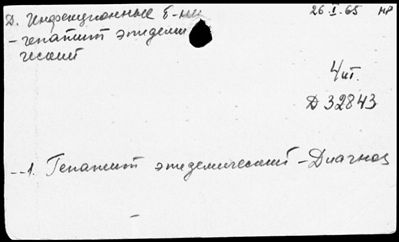 Д. Инфекционные б-ни 26 I. 65 НР
- гепатит эпидеми
ческий
4 шт.
Д 32843
--1. Гепатит эпидемический - Диагноз